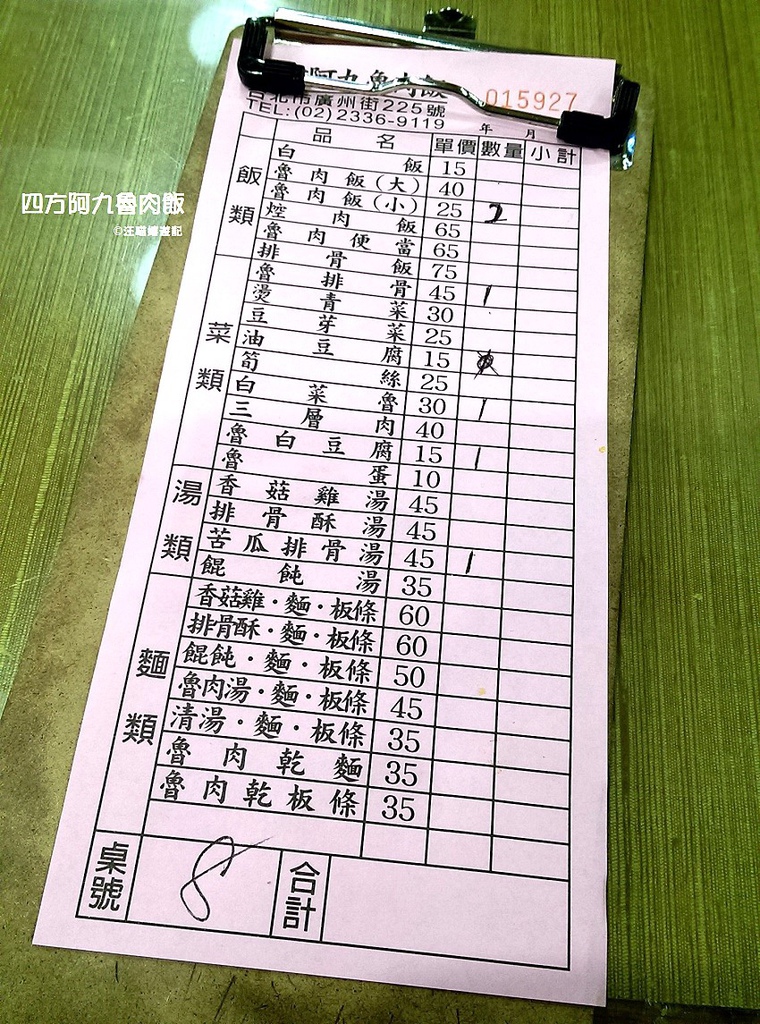 阿九魯肉飯
015927
台北市廣州街225號
TEL:(02)2336-9119
年 月
品名 單價 數量 小計
飯類
白飯 15
魯肉飯(大) 40
魯肉飯(小) 25 2
焢肉飯 65
魯肉便當 65
排骨飯 75
菜類
魯排骨 45 1
燙青菜 30
豆芽菜 25
油豆腐 15
筍絲 25
白菜魯 30 1
三層肉 40
魯白豆腐 15 1
魯蛋 10
湯類
香菇雞湯 45
排骨酥湯 45
苦瓜排骨湯 45 1
餛飩湯 35
麵類
香菇雞·麵·板條 60
排骨酥·麵·板條 60
餛飩·麵·板條 50
魯肉湯·麵·板條 45
清湯·麵·板條 35
魯肉乾麵 35
魯肉乾板條 35
桌號 8 合計
四方阿九魯肉飯